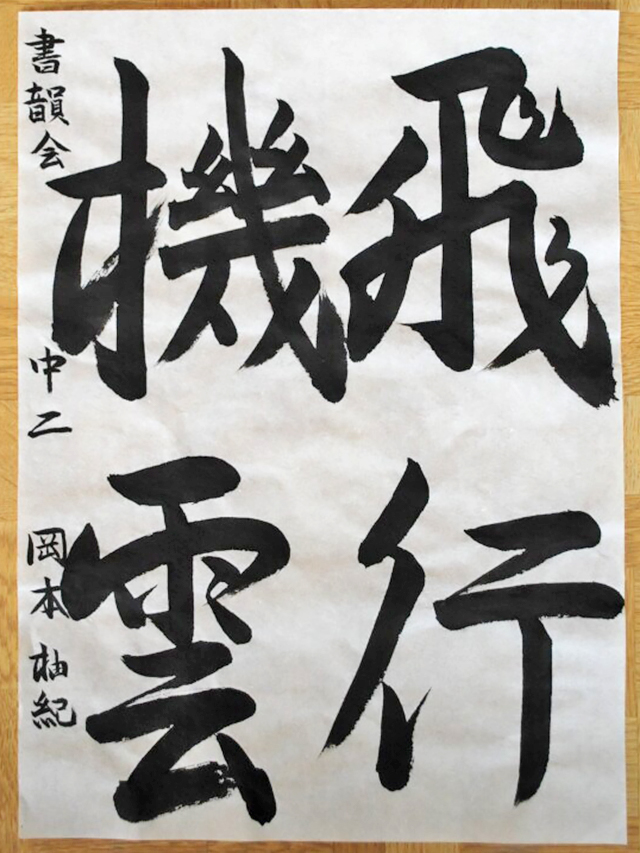 飛行
機雲
書韻会 中二 岡本柚紀